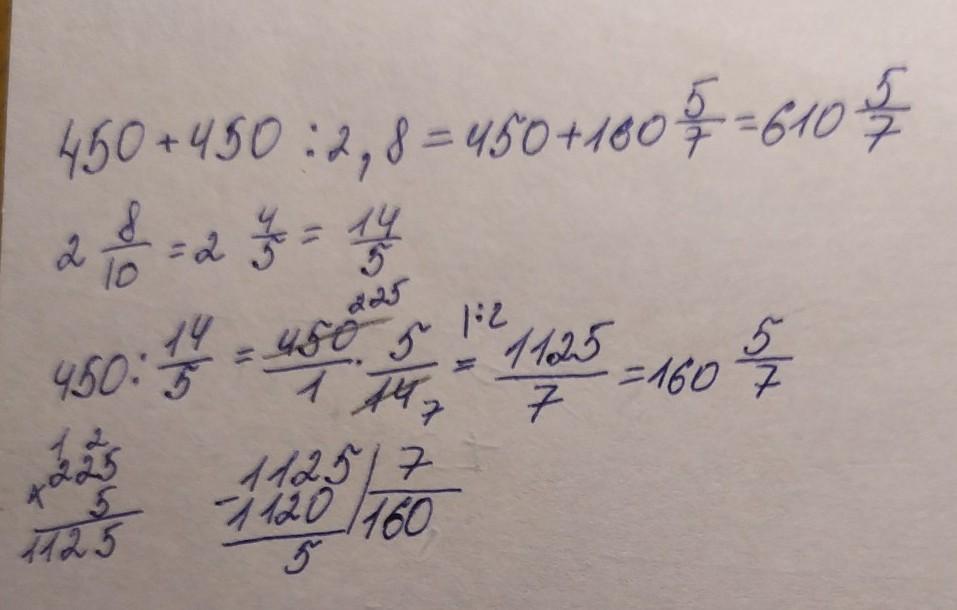 450 + 450 : 2,8 = 450 + 160 5/7 = 610 5/7
2 8/10 = 2 4/5 = 14/5
450 : 14/5 = 450/1 225 · 5/14 7 = |:2 1125/7 = 160 5/7
1 2
× 225
5
1125
1125 | 7
- 1120 | 160
5